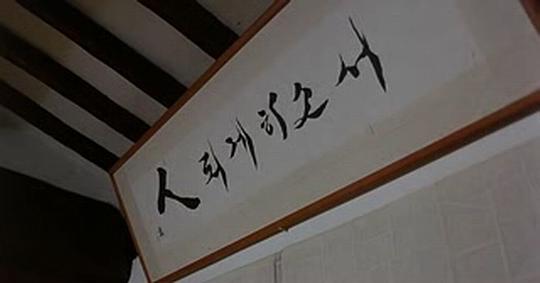 人 되게 하소서